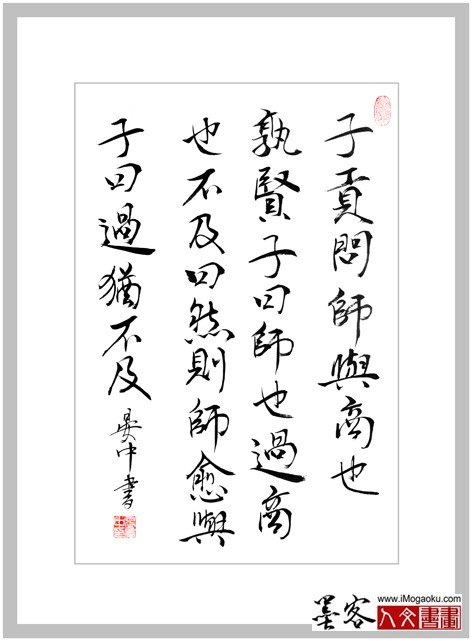 子貢問師與商也
孰賢子曰師也過商
也不及曰然則師愈與
子曰過猶不及
中書
墨客
www.iMogaoku.com
人文書畫